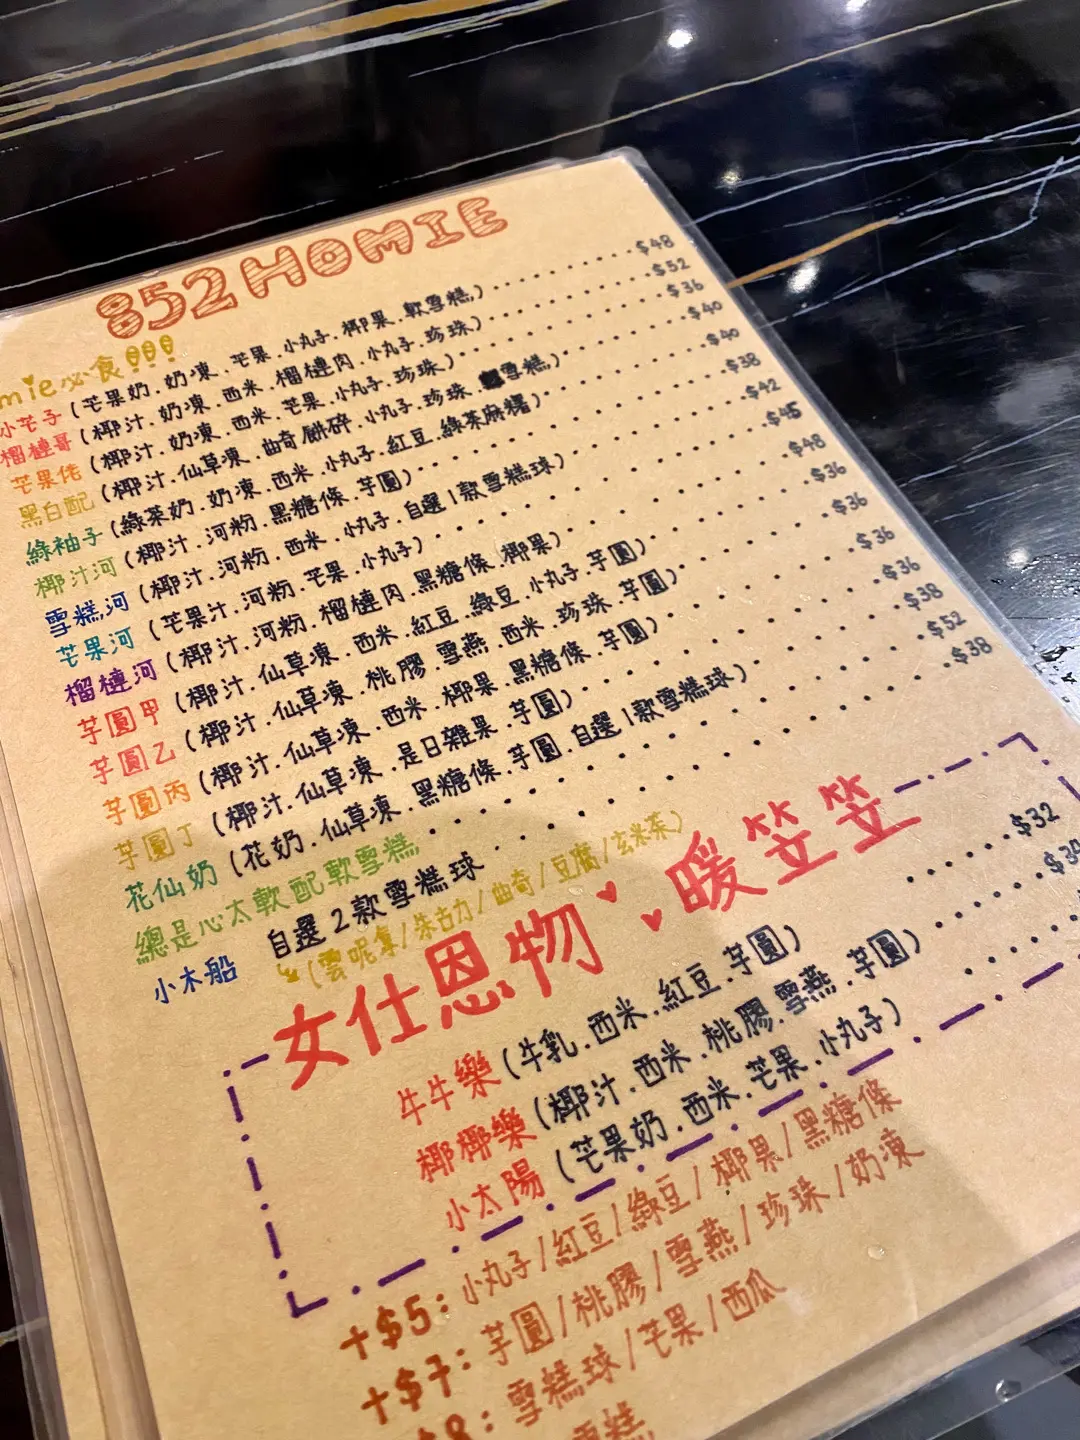 852 HOMIE
mie必食!!!
小芒子 (芒果奶.奶凍.芒果.小丸子.椰果.軟雪糕) $48
榴槤哥 (椰汁.奶凍.西米.榴槤肉.小丸子.珍珠) $52
芒果佬 (椰汁.奶凍.西米.芒果.小丸子.珍珠) $36
黑白配 (椰汁.仙草凍.曲奇餅碎.小丸子.珍珠.雪糕) $40
綠袖子 (綠茶奶.奶凍.西米.小丸子.紅豆.綠茶麻糬) $40
椰汁河 (椰汁.河粉.黑糖條.芋圓) $38
雪糕河 (椰汁.河粉.西米.小丸子.自選1款雪糕球) $42
芒果河 (芒果汁.河粉.芒果.小丸子) $45
榴槤河 (椰汁.河粉.榴槤肉.黑糖條.椰果) $48
芋圓甲 (椰汁.仙草凍.西米.紅豆.綠豆.小丸子.芋圓) $36
芋圓乙 (椰汁.仙草凍.桃膠.雪燕.西米.珍珠.芋圓) $36
芋圓丙 (椰汁.仙草凍.西米.椰果.黑糖條.芋圓) $36
芋圓丁 (椰汁.仙草凍.是日雜果.芋圓) $36
花仙奶 (花奶.仙草凍.黑糖條.芋圓.自選1款雪糕球) $38
總是心太軟配軟雪糕 $52
小木船 自選2款雪糕球 $38
(雲呢拿/朱古力/曲奇/豆腐/玄米茶)
女仕恩物 暖笠笠
牛牛樂 (牛乳.西米.紅豆.芋圓) $32
椰椰樂 (椰汁.西米.桃膠.雪燕.芋圓)
小太陽 (芒果奶.西米.芒果.小丸子)
+$5: 小丸子/紅豆/綠豆/椰果/黑糖條
+$7: 芋圓/桃膠/雪燕/珍珠/奶凍
$8: 雪糕球/芒果/西瓜
雪糕